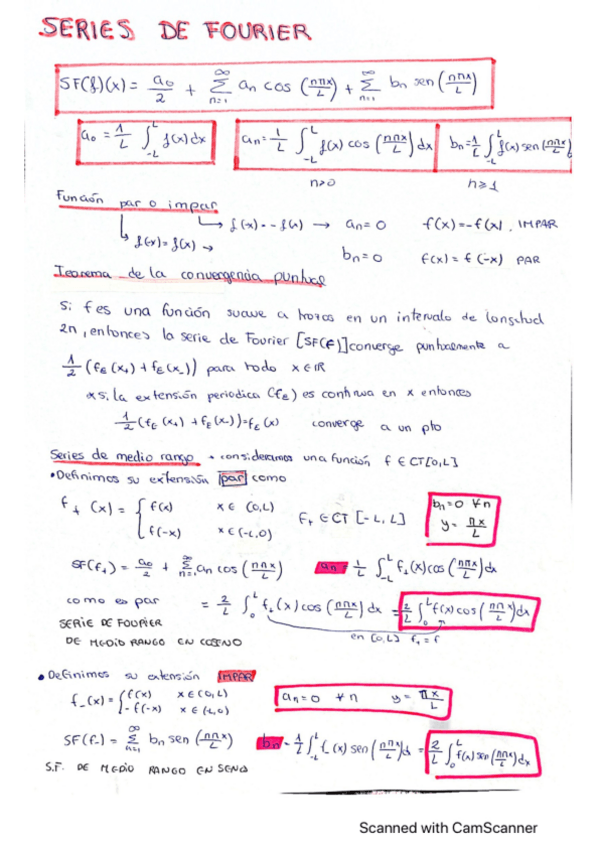 SERIES DE FOURIER
SF(f)(x) = a₀/2 + Σ_{n=1}^{∞} aₙ cos (nπx/L) + Σ_{n=1}^{∞} bₙ sen (nπx/L)
a₀ = 1/L ∫_{-L}^{L} f(x) dx aₙ = 1/L ∫_{-L}^{L} f(x) cos (nπx/L) dx bₙ = 1/L ∫_{-L}^{L} f(x) sen (nπx/L)
n>0 n≥1
Función par o impar
↳ f(x) = - f(x) → aₙ = 0 f(x) = -f(x) . IMPAR
↳ f(-x) = f(x) → bₙ = 0 f(x) = f(-x) PAR
Teorema de la convergencia puntual
Si f es una función suave a trozos en un intervalo de longitud
2π, entonces la serie de Fourier [SF(f)] converge puntualmente a
1/2 (f_E(x₊) + f_E(x₋)) para todo x ∈ ℝ
* si la extensión periodica (f_E) es continua en x entonces
1/2 (f_E(x₊) + f_E(x₋)) = f_E(x) converge a un pto
Series de medio rango → consideramos una función f ∈ CT[0,L]
• Definimos su extensión par como
f₊(x) = { f(x) x ∈ (0,L)
f(-x) x ∈ (-L,0)
f₊ ∈ CT [-L, L]
bₙ = 0 ∀n
y = πx/L
SF(f₊) = a₀/2 + Σ_{n=1}^{∞} aₙ cos (nπx/L) aₙ = 1/L ∫_{-L}^{L} f₊(x) cos (nπx/L) dx
como es par = 2/L ∫_0^L f₊(x) cos (nπx/L) dx = 2/L ∫_0^L f(x) cos (nπx/L) dx
SERIE DE FOURIER
DE MEDIO RANGO EN COSENO
en [0,L] f₊ = f
• Definimos su extensión IMPAR
f₋(x) = { f(x) x ∈ (0,L)
- f(-x) x ∈ (-L,0)
aₙ = 0 ∀n y = πx/L
SF(f₋) = Σ_{n=1}^{∞} bₙ sen (nπx/L) bₙ = 1/L ∫_{-L}^{L} f₋(x) sen (nπx/L) d = 2/L ∫_0^L f(x) sen (nπx/L) dx
S.F. DE MEDIO RANGO EN SENO
Scanned with CamScanner